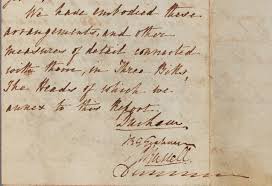 We have embodied these
arrangements, and other
measures of detail connected
with them, in Three Bills,
The Heads of which we
annex to this Report.
Durham
J Russell
Duncannon